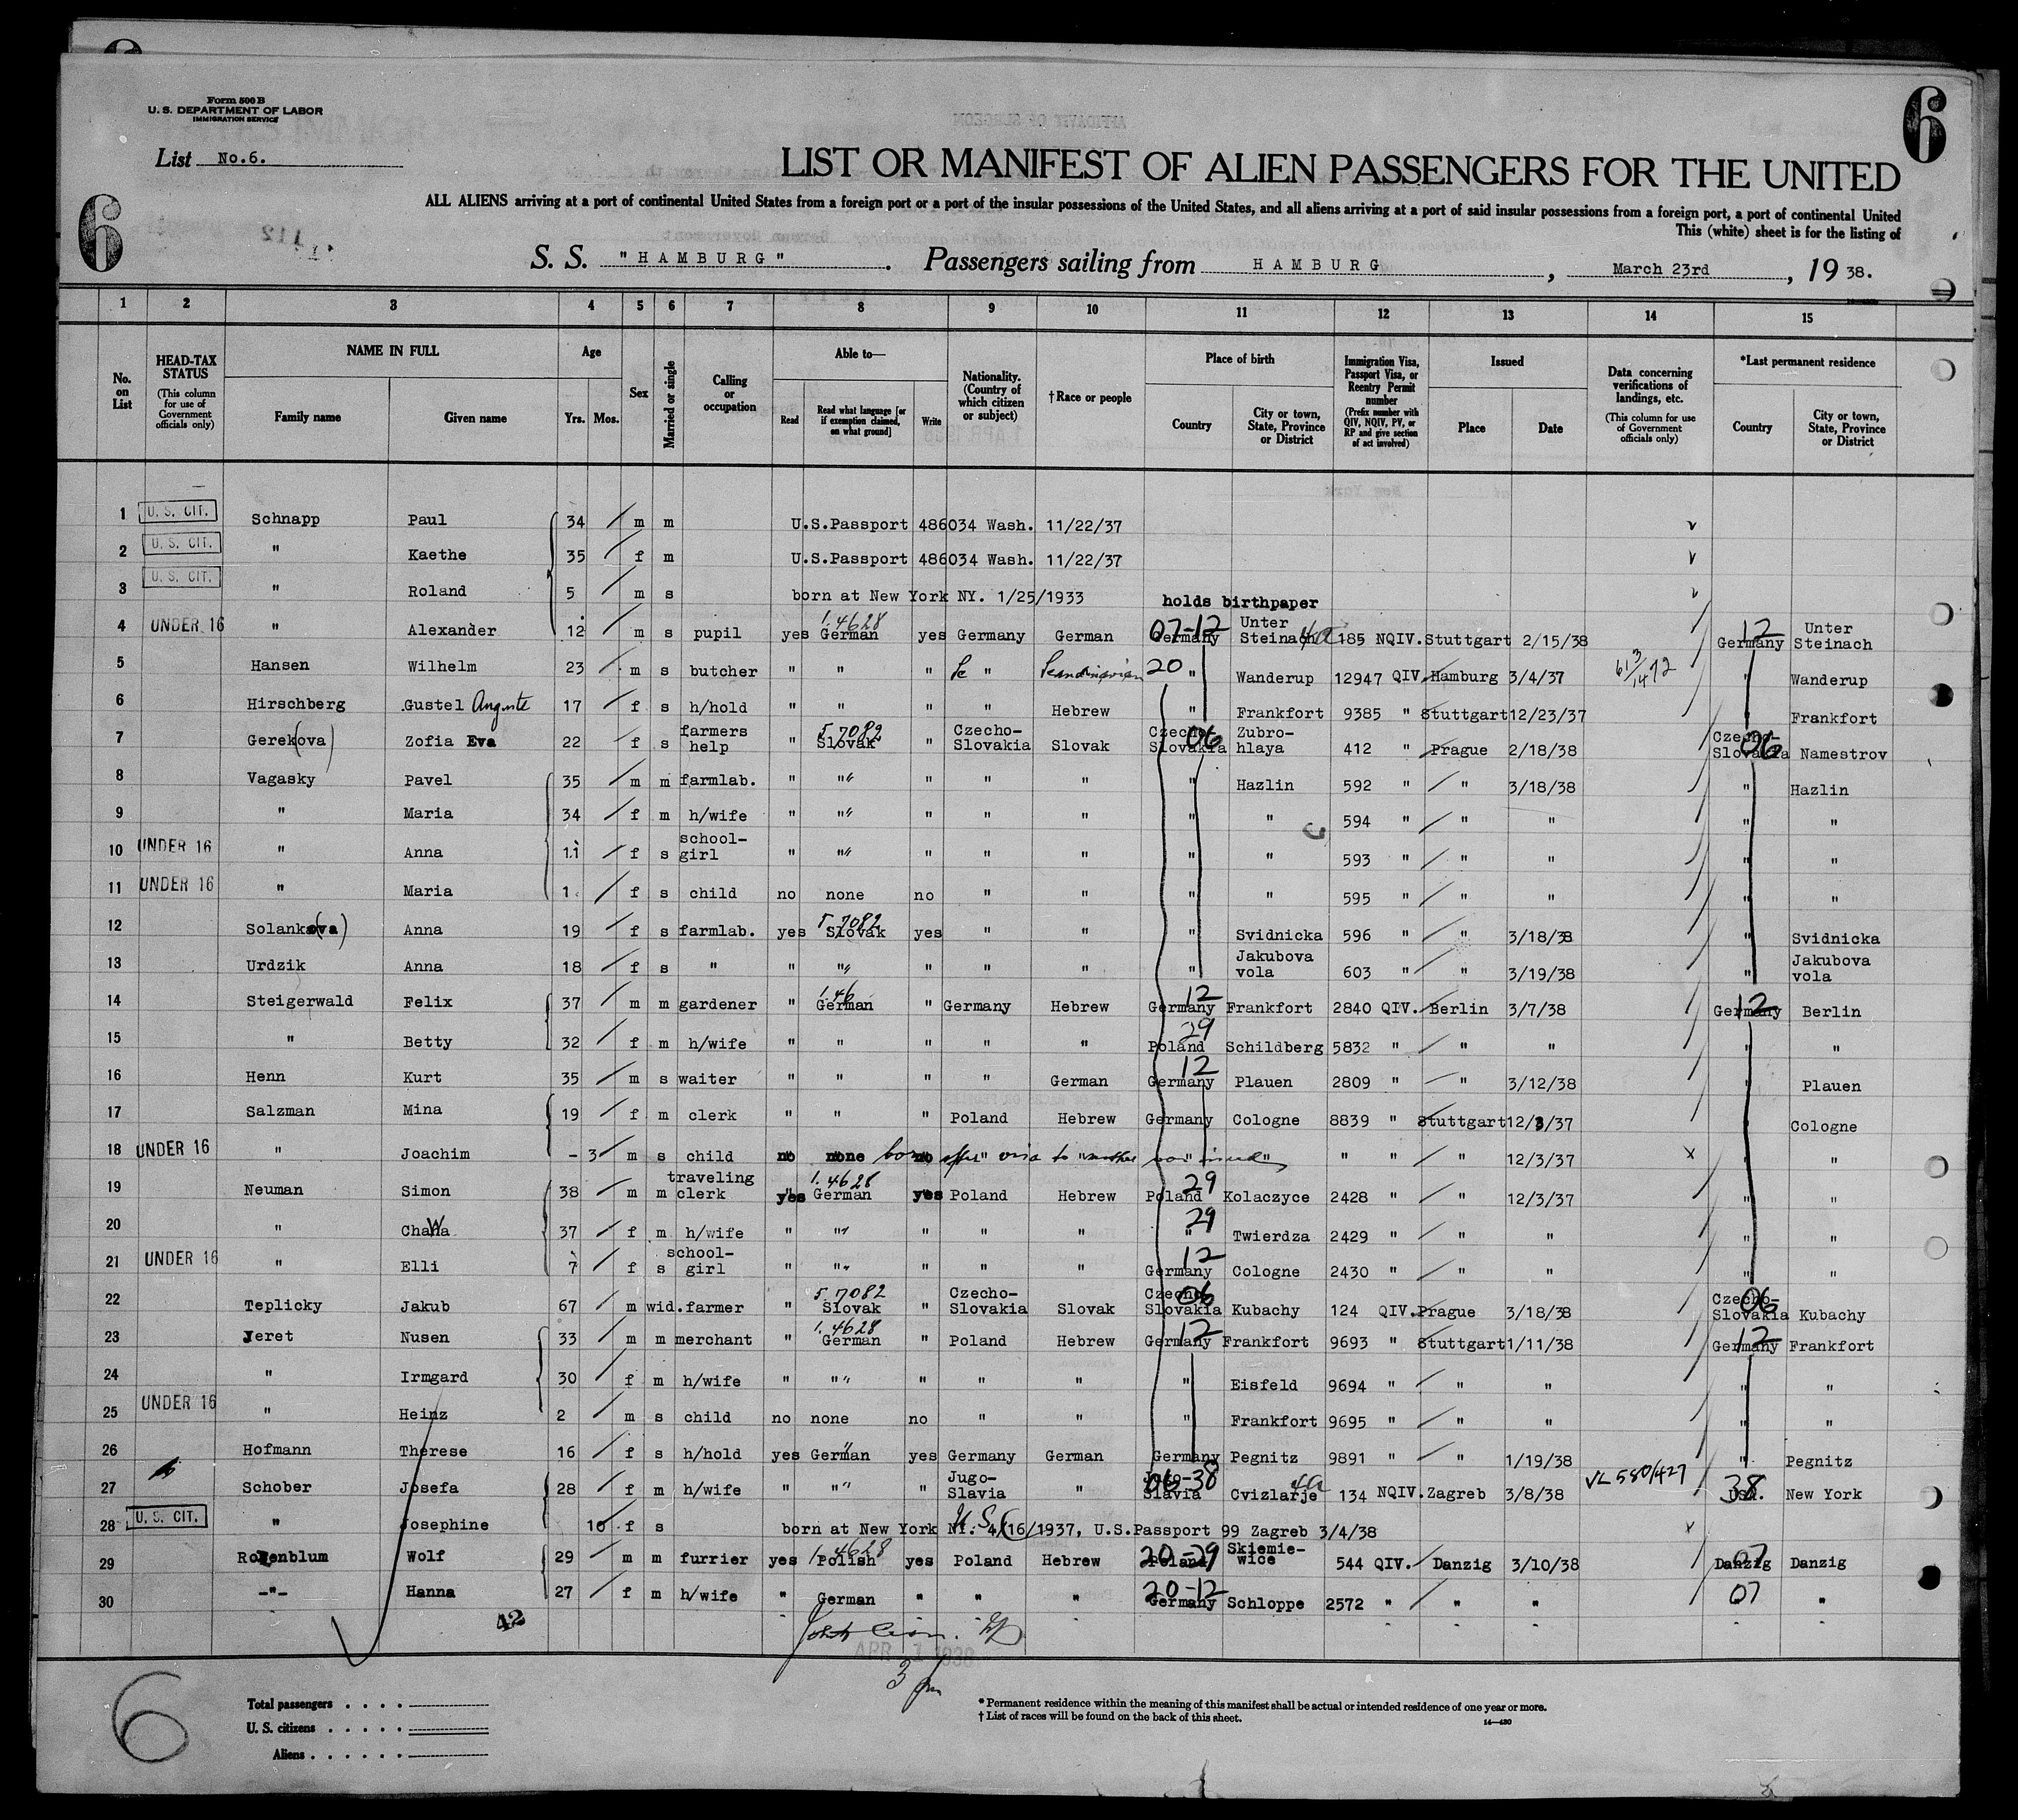 Form 500 B
U. S. DEPARTMENT OF LABOR
IMMIGRATION SERVICE
6
List No.6.
LIST OR MANIFEST OF ALIEN PASSENGERS FOR THE UNITED
6
ALL ALIENS arriving at a port of continental United States from a foreign port or a port of the insular possessions of the United States, and all aliens arriving at a port of said insular possessions from a foreign port, a port of continental United
This (white) sheet is for the listing of
S. S. "HAMBURG". Passengers sailing from HAMBURG, March 23rd, 19 38.
1 2 3 4 5 6 7 8 9 10 11 12 13 14 15
No. on List
HEAD-TAX STATUS (This column for use of Government officials only)
NAME IN FULL
Family name Given name
Age
Yrs. Mos.
Sex
Married or single
Calling or occupation
Able to—
Read Read what language [or if exemption claimed, on what ground] Write
Nationality. (Country of which citizen or subject)
†Race or people
Place of birth
Country City or town, State, Province or District
Immigration Visa, Passport Visa, or Reentry Permit number (Prefix number with QIV, NQIV, PV, or RP and give section of act involved)
Issued
Place Date
Data concerning verifications of landings, etc. (This column for use of Government officials only)
*Last permanent residence
Country City or town, State, Province or District
1 U. S. CIT. Schnapp Paul 34 m m U.S.Passport 486034 Wash. 11/22/37
2 U. S. CIT. " Kaethe 35 f m U.S.Passport 486034 Wash. 11/22/37
3 U. S. CIT. " Roland 5 m s born at New York NY. 1/25/1933 holds birthpaper
4 UNDER 16 " Alexander 12 m s pupil yes German 1.4628 yes Germany German Germany 07-12 Unter Steinach 185 NQIV. Stuttgart 2/15/38 Germany 12 Unter Steinach
5 Hansen Wilhelm 23 m s butcher " " " " Scandinavian 20 " Wanderup 12947 QIV. Hamburg 3/4/37 " Wanderup
6 Hirschberg Gustel Auguste 17 f s h/hold " " " " Hebrew " Frankfort 9385 " Stuttgart 12/23/37 " Frankfort
7 Gerek(ova) Zofia Eva 22 f s farmers help " Slovak 5 7082 " Czecho-Slovakia Slovak Czecho-Slovakia 06 Zubrohlaya 412 " Prague 2/18/38 Czecho-Slovakia 06 Namestrov
8 Vagasky Pavel 35 m m farmlab. " " " " " " Hazlin 592 " " 3/18/38 " Hazlin
9 " Maria 34 f m h/wife " " " " " " " 594 " " " " "
10 UNDER 16 " Anna 11 f s school-girl " " " " " " " 593 " " " " "
11 UNDER 16 " Maria 1 f s child no none no " " " " 595 " " " " "
12 Solank(ova) Anna 19 f s farmlab. yes Slovak 5 7082 yes " " " Svidnicka 596 " " 3/18/38 " Svidnicka
13 Urdzik Anna 18 f s " " " " " " " Jakubova vola 603 " " 3/19/38 " Jakubova vola
14 Steigerwald Felix 37 m m gardener " German 1.46 " Germany Hebrew Germany 12 Frankfort 2840 QIV. Berlin 3/7/38 Germany 12 Berlin
15 " Betty 32 f m h/wife " " " " " Poland 29 Schildberg 5832 " " " " "
16 Henn Kurt 35 m s waiter " " " " German Germany 12 Plauen 2809 " " 3/12/38 " Plauen
17 Salzman Mina 19 f m clerk " " " Poland Hebrew Germany Cologne 8839 " Stuttgart 12/3/37 " Cologne
18 UNDER 16 " Joachim - 3 m s child no none no born after visa to mother was issued " " " 12/3/37 x " "
19 Neuman Simon 38 m m traveling clerk yes German 1.4628 yes Poland Hebrew Poland 29 Kolaczyce 2428 " " 12/3/37 " "
20 " Chana 37 f m h/wife " " " " " " 29 Twierdza 2429 " " " " "
21 UNDER 16 " Elli 7 f s school-girl " " " " " Germany 12 Cologne 2430 " " " " "
22 Teplicky Jakub 67 m wid. farmer " Slovak 5 7082 " Czecho-Slovakia Slovak Czecho-Slovakia 06 Kubachy 124 QIV. Prague 3/18/38 Czecho-Slovakia 06 Kubachy
23 Jeret Nusen 33 m m merchant " German 1.4628 " Poland Hebrew Germany 12 Frankfort 9693 " Stuttgart 1/11/38 Germany 12 Frankfort
24 " Irmgard 30 f m h/wife " " " " " " Eisfeld 9694 " " " " "
25 UNDER 16 " Heinz 2 m s child no none no " " " Frankfort 9695 " " " " "
26 Hofmann Therese 16 f s h/hold yes German yes Germany German Germany Pegnitz 9891 " " 1/19/38 " Pegnitz
27 Schober Josefa 28 f m h/wife " " " Jugo-Slavia " Jugo-Slavia 06-38 Cvizlarje 4a 134 NQIV. Zagreb 3/8/38 VL 580/427 USA. 38 New York
28 U. S. CIT. " Josephine 10 f s born at New York NY. 4/16/1937, U.S.Passport 99 Zagreb 3/4/38 x
29 Rosenblum Wolf 29 m m furrier yes Polish 1.4628 yes Poland Hebrew Poland 20-29 Skiemiewice 544 QIV. Danzig 3/10/38 Danzig 07 Danzig
30 -"- Hanna 27 f m h/wife " German " " " Germany 20-12 Schloppe 2572 " " " 07 "
42
APR 1 1938
3 pm
6
Total passengers
U. S. citizens
Aliens
*Permanent residence within the meaning of this manifest shall be actual or intended residence of one year or more.
†List of races will be found on the back of this sheet.
14—430